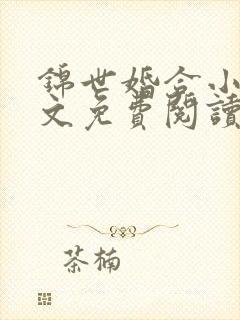 錦世婚合小
文免費閱讀
茶楠